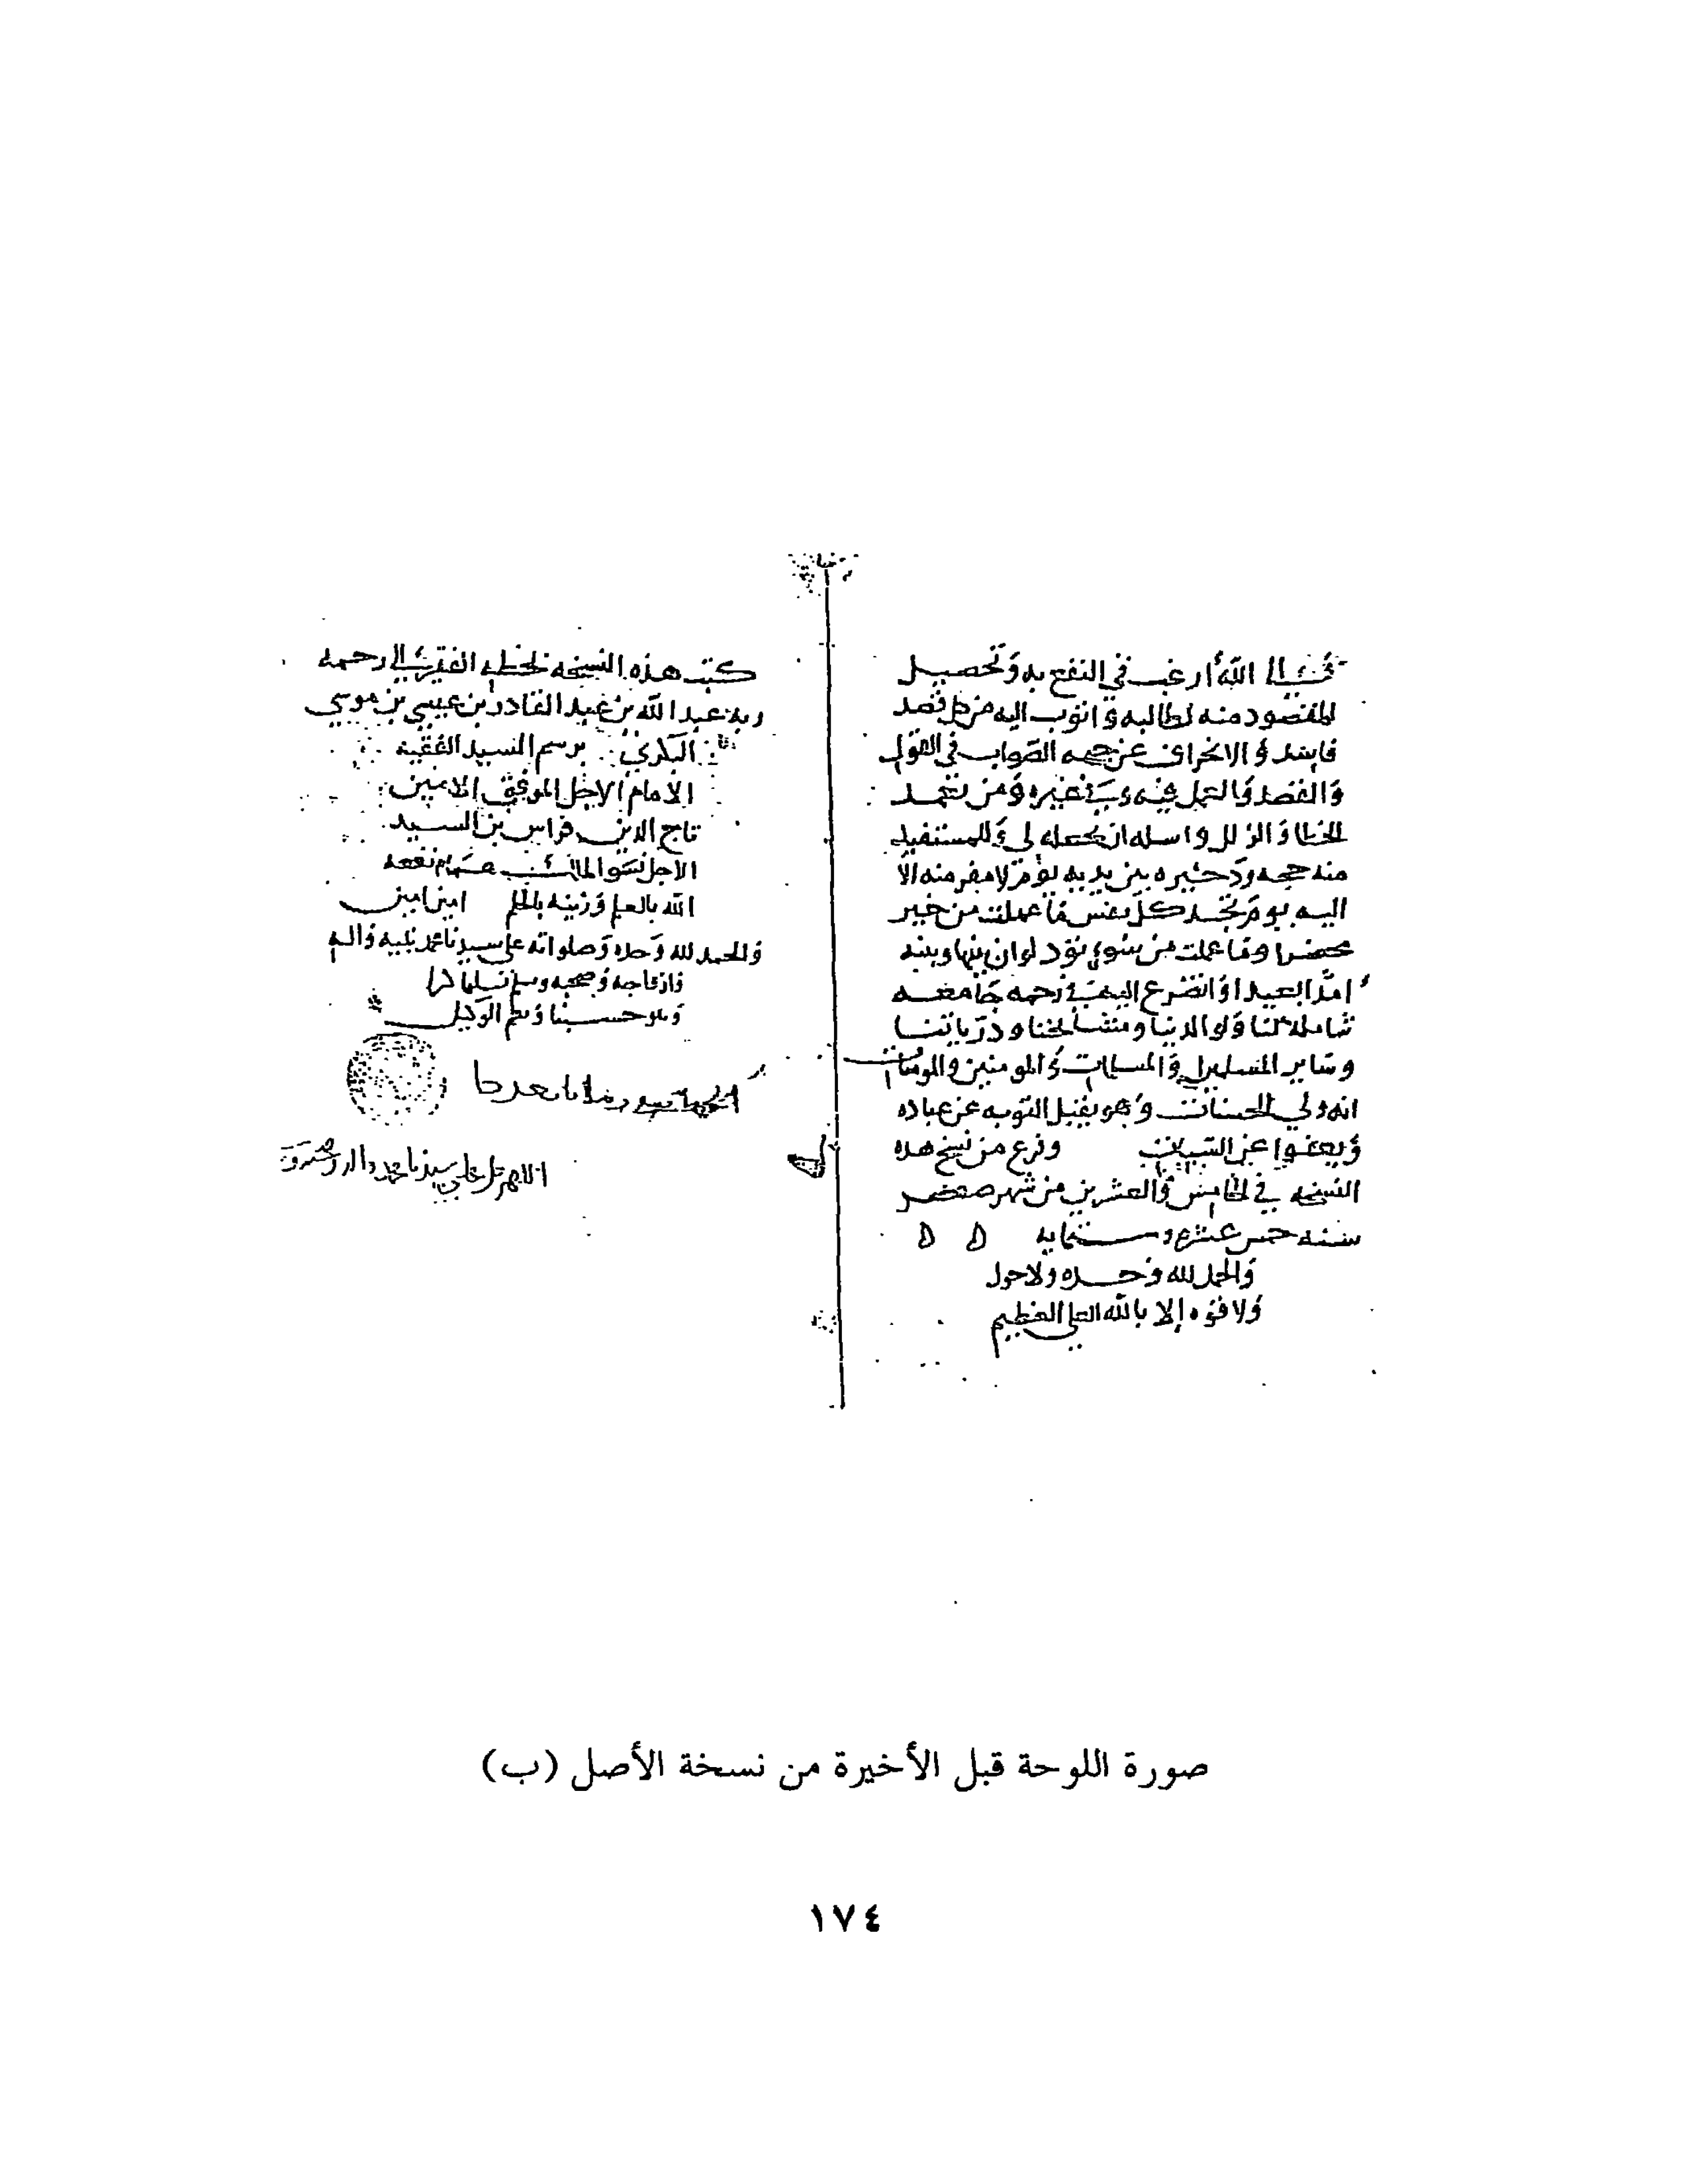 والى الله أرغب في النفع به وتحصيل
المقصود منه لطالبه وأتوب اليه من كل قصد
فاسد والانحراف عن جهه الصواب في القول
والقصد والعمل فيه وفي غيره ومن تعمد
الخطا والزلل واسله ان يجعله لي وللمستفيد
منه حجه وذخيره بين يديه يوم لا مفر منه الا
اليه يوم تجد كل نفس ما عملت من خير
محضرا وما عملت من سوء تود لو ان بينها وبينه
امدا بعيدا واتضرع اليه في رحمه جامعه
شامله لنا ولوالدينا ومشايخنا وذرياتنا
وساير المسلمين والمسلمات والمومنين والمومنات
انه ولي الحسنات وهو يقبل التوبه عن عباده
ويعفوا عن السييات وفرغ من نسخ هذه
النسخه في الخامس والعشرين من شهر صفر
سنه خمس عشره وستمايه ه ه
والحمد لله وحده ولا حول
ولا قوه إلا بالله العلي العظيم
كتب هذه النسخه بخطه الفقير الى رحمه
ربه عبد الله بن عبد القادر بن عيسى بن موسى
البكري برسم السيد الفقيه
الامام الاجل الموفق الامين
تاج الدين فراس بن السيد
الاجل نفعه
الله بالعلم وزينه بالحلم امين امين
والحمد لله وحده وصلواته على سيدنا محمد نبيه واله
وازواجه وصحبه وسلم تسليما
وهو حسبنا ونعم الوكيل
اللهم صل على سيدنا محمد
صورة اللوحة قبل الأخيرة من نسخة الأصل (ب)
١٧٤